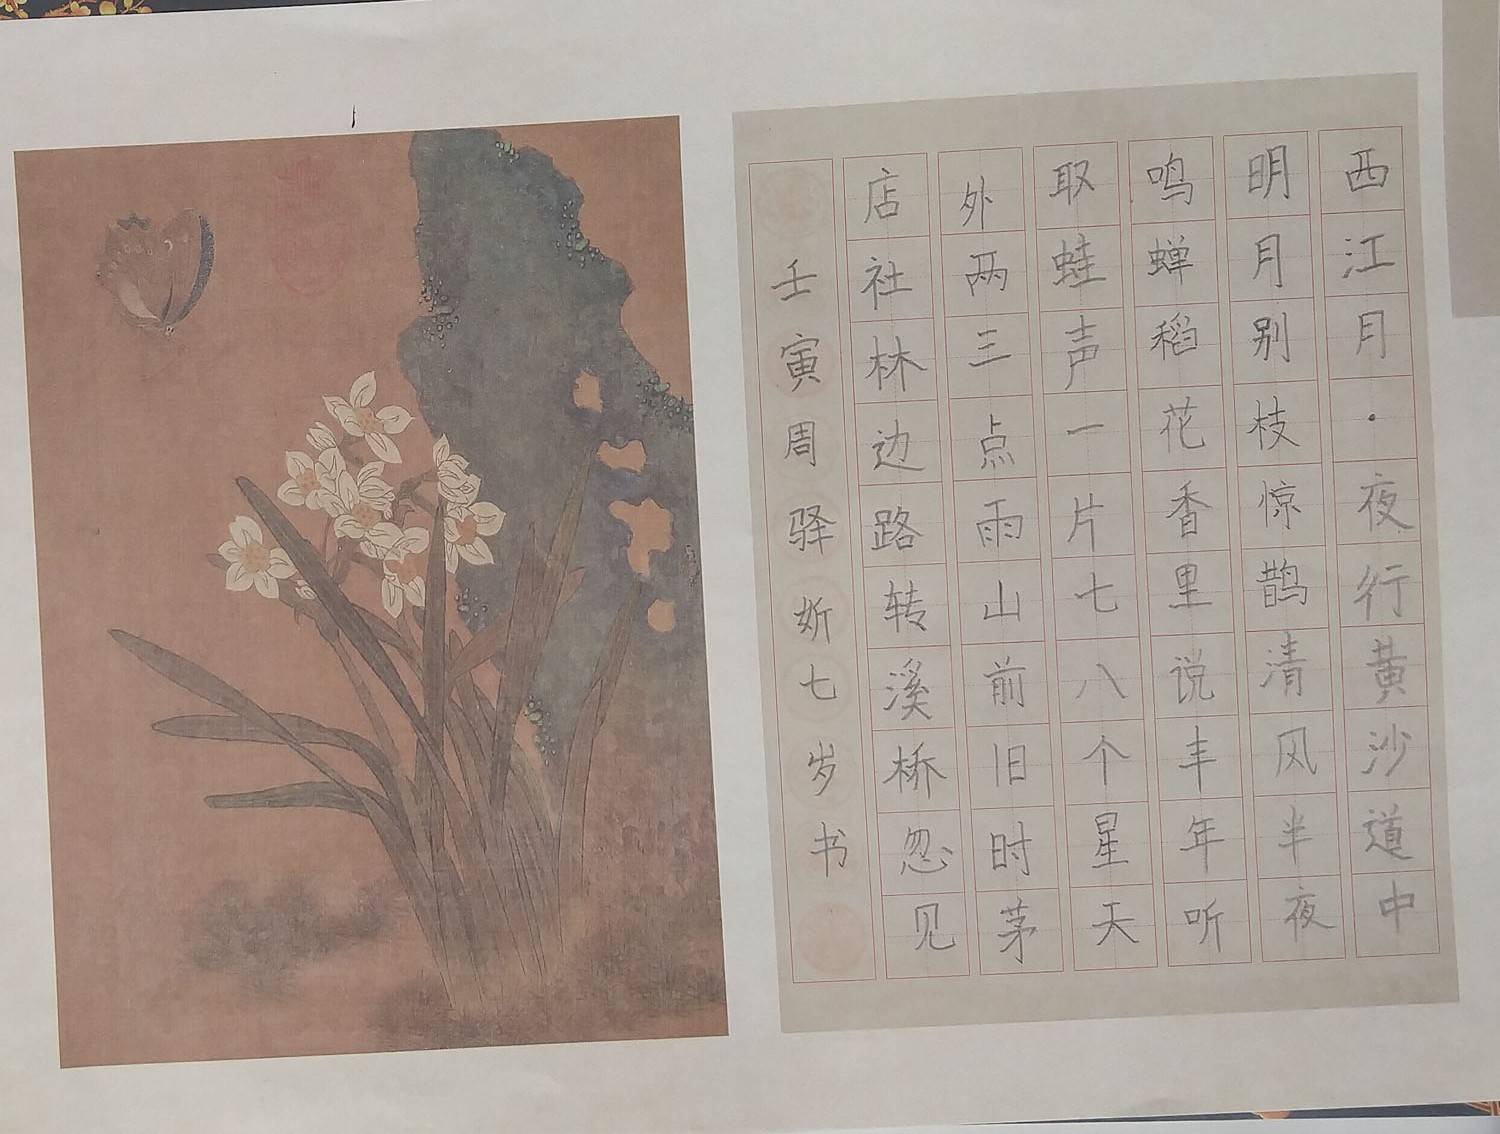 西江月·夜行黄沙道中
明月别枝惊鹊清风半夜
鸣蝉稻花香里说丰年听
取蛙声一片七八个星天
外两三点雨山前旧时茅
店社林边路转溪桥忽见
壬寅周驿妡七岁书